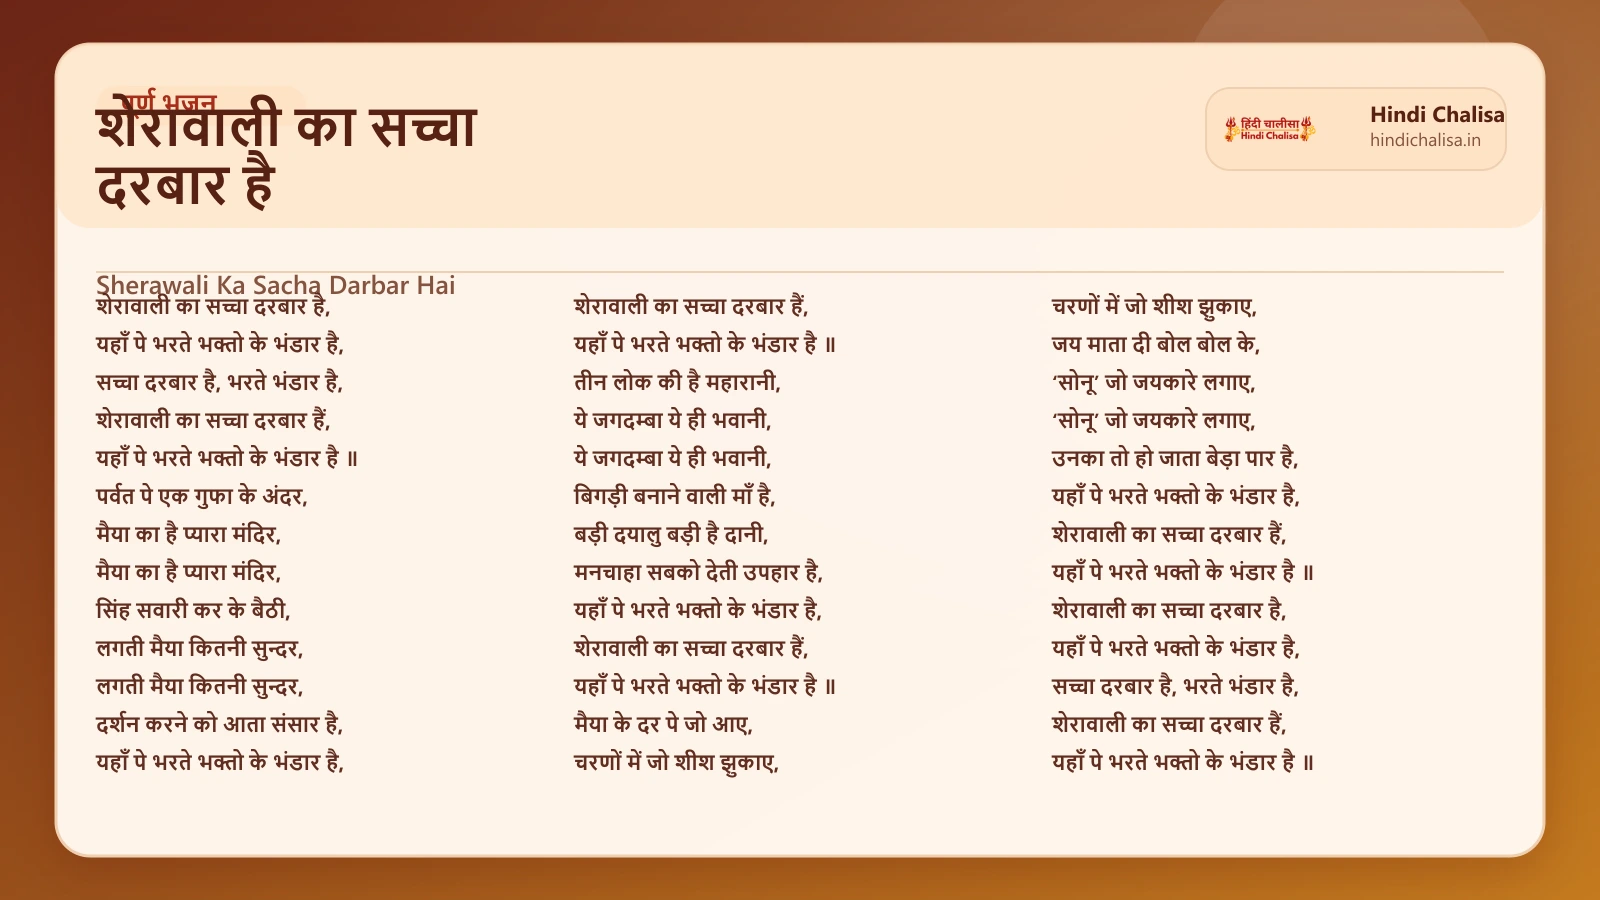 पूर्ण भजन
शेरावाली का सच्चा
दरबार है
हिंदी चालीसा
Hindi Chalisa
Hindi Chalisa
hindichalisa.in
Sherawali Ka Sacha Darbar Hai
शेरावाली का सच्चा दरबार है,
यहाँ पे भरते भक्तो के भंडार है,
सच्चा दरबार है, भरते भंडार है,
शेरावाली का सच्चा दरबार हैं,
यहाँ पे भरते भक्तो के भंडार है ॥
पर्वत पे एक गुफा के अंदर,
मैया का है प्यारा मंदिर,
मैया का है प्यारा मंदिर,
सिंह सवारी कर के बैठी,
लगती मैया कितनी सुन्दर,
लगती मैया कितनी सुन्दर,
दर्शन करने को आता संसार है,
यहाँ पे भरते भक्तो के भंडार है,
शेरावाली का सच्चा दरबार हैं,
यहाँ पे भरते भक्तो के भंडार है ॥
तीन लोक की है महारानी,
ये जगदम्बा ये ही भवानी,
ये जगदम्बा ये ही भवानी,
बिगड़ी बनाने वाली माँ है,
बड़ी दयालु बड़ी है दानी,
मनचाहा सबको देती उपहार है,
यहाँ पे भरते भक्तो के भंडार है,
शेरावाली का सच्चा दरबार हैं,
यहाँ पे भरते भक्तो के भंडार है ॥
मैया के दर पे जो आए,
चरणों में जो शीश झुकाए,
चरणों में जो शीश झुकाए,
जय माता दी बोल बोल के,
‘सोनू’ जो जयकारे लगाए,
‘सोनू’ जो जयकारे लगाए,
उनका तो हो जाता बेड़ा पार है,
यहाँ पे भरते भक्तो के भंडार है,
शेरावाली का सच्चा दरबार हैं,
यहाँ पे भरते भक्तो के भंडार है ॥
शेरावाली का सच्चा दरबार है,
यहाँ पे भरते भक्तो के भंडार है,
सच्चा दरबार है, भरते भंडार है,
शेरावाली का सच्चा दरबार हैं,
यहाँ पे भरते भक्तो के भंडार है ॥